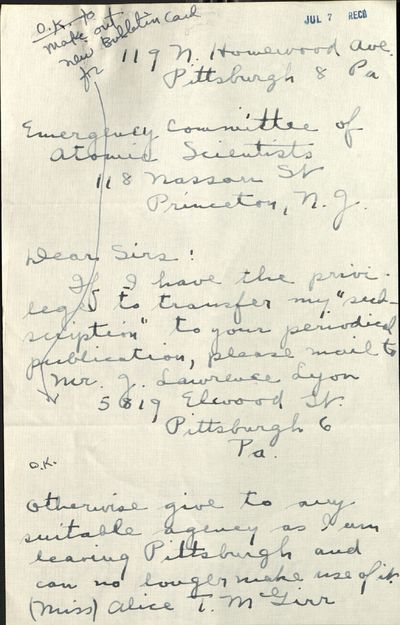 O.K. to
make out
new Bulletin Card
for
JUL 7 RECD
119 N. Homewood Ave.
Pittsburgh 8 Pa
Emergency Committee of
Atomic Scientists
118 Nassau St
Princeton, N.J.
Dear Sirs!
If I have the privi-
lege to transfer my "sub-
scription" to your periodical
publication, please mail to
Mr. J. Lawrence Lyon
5819 Elwood St.
Pittsburgh 6
Pa.
O.K.
Otherwise give to any
suitable agency as I am
leaving Pittsburgh and
can no longer make use of it.
(Miss) Alice T. McGirr